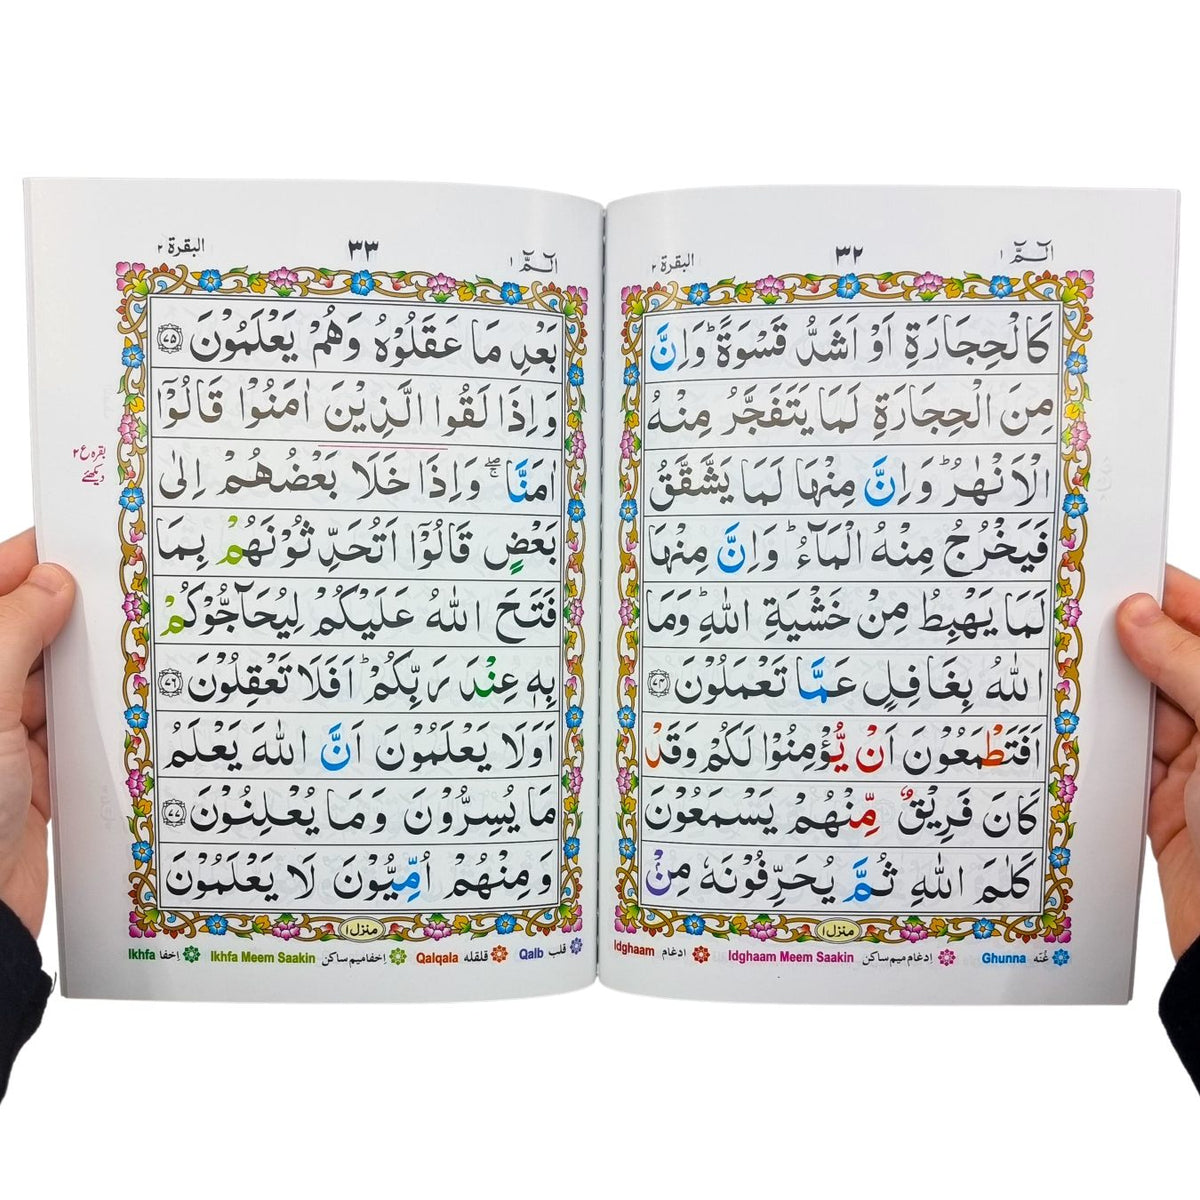 الٓـمّٓ ١
٣٢
البقرة ٢
كَالْحِجَارَةِ اَوْ اَشَدُّ قَسْوَةً ؕ وَاِنَّ
مِنَ الْحِجَارَةِ لَمَا يَتَفَجَّرُ مِنْهُ
الْاَنْهٰرُ ؕ وَاِنَّ مِنْهَا لَمَا يَشَّقَّقُ
فَيَخْرُجُ مِنْهُ الْمَآءُ ؕ وَاِنَّ مِنْهَا
لَمَا يَهْبِطُ مِنْ خَشْيَةِ اللّٰهِ ؕ وَمَا
اللّٰهُ بِغَافِلٍ عَمَّا تَعْمَلُوْنَ ﴿٧٤﴾
اَفَتَطْمَعُوْنَ اَنْ يُّؤْمِنُوْا لَكُمْ وَقَدْ
كَانَ فَرِيْقٌ مِّنْهُمْ يَسْمَعُوْنَ
كَلٰمَ اللّٰهِ ثُمَّ يُحَرِّفُوْنَهٗ مِنْۢ
منزل ١
Ghunna غُنّه
Idghaam Meem Saakin اِدغام میم ساکن
Idghaam ادغام
الٓـمّٓ ١
٣٣
البقرة ٢
بَعْدِ مَا عَقَلُوْهُ وَهُمْ يَعْلَمُوْنَ ﴿٧٥﴾
وَاِذَا لَقُوا الَّذِيْنَ اٰمَنُوْا قَالُوْٓا
اٰمَنَّا ۖۚ وَاِذَا خَلَا بَعْضُهُمْ اِلٰى
بَعْضٍ قَالُوْٓا اَتُحَدِّثُوْنَهُمْ بِمَا
فَتَحَ اللّٰهُ عَلَيْكُمْ لِيُحَآجُّوْكُمْ
بِهٖ عِنْدَ رَبِّكُمْ ؕ اَفَلَا تَعْقِلُوْنَ ﴿٧٦﴾
اَوَلَا يَعْلَمُوْنَ اَنَّ اللّٰهَ يَعْلَمُ
مَا يُسِرُّوْنَ وَمَا يُعْلِنُوْنَ ﴿٧٧﴾
وَمِنْهُمْ اُمِّيُّوْنَ لَا يَعْلَمُوْنَ
بقرہ ع ٢
دیکھئے
منزل ١
Qalb قلب
Qalqala قلقله
Ikhfa Meem Saakin اِخفا میم ساکن
Ikhfa اِخفا